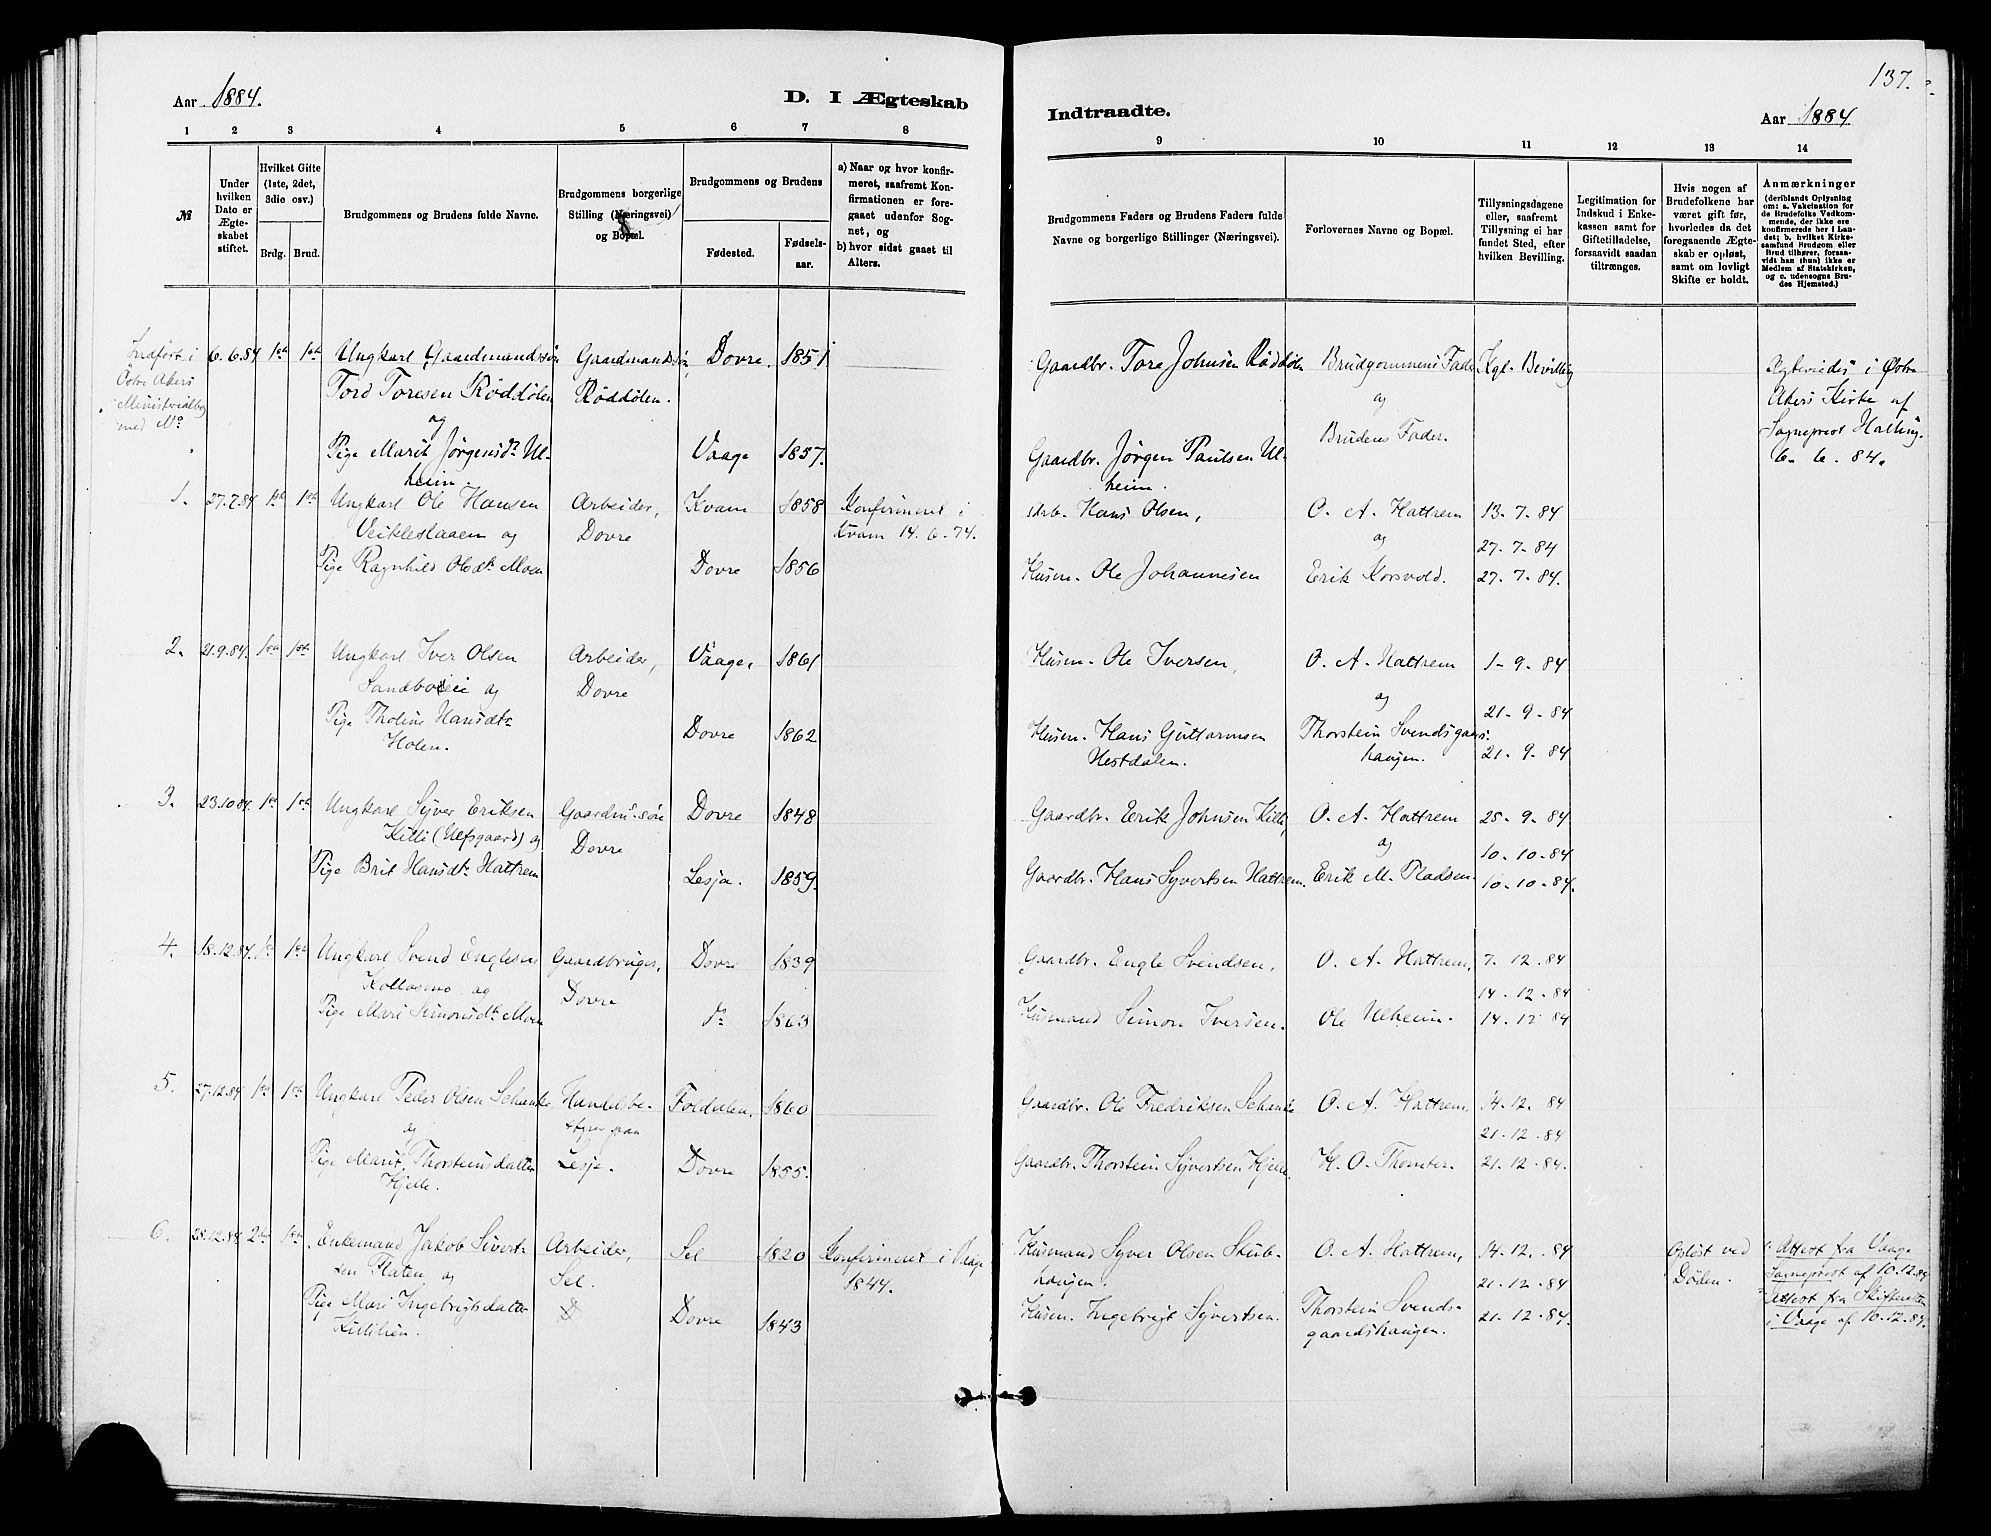 137.
Aar 1884.
D. I Ægteskab
Indtraadte.
Aar 1884.
1 2 3 4 5 6 7 8
9 10 11 12 13 14
№
Under hvilken Dato er Ægteskabet stiftet.
Hvilket Gifte (1ste, 2det, 3die osv.)
Brdg. Brud.
Brudgommens og Brudens fulde Navne.
Brudgommens borgerlige Stilling (Næringsvei) og Bopæl.
Brudgommens og Brudens
Fødested. Fødselsaar.
a) Naar og hvor konfirmeret, saafremt Konfirmationen er foregaaet udenfor Sognet, og
b) hvor sidst gaaet til Alters.
Brudgommens Faders og Brudens Faders fulde Navne og borgerlige Stillinger (Næringsvei).
Forlovernes Navne og Bopæl.
Tillysningsdagene eller, saafremt Tillysning ei har fundet Sted, efter hvilken Bevilling.
Legitimation for Indskud i Enkekassen samt for Giftetilladelse, forsaavidt saadan tiltrænges.
Hvis nogen af Brudefolkene har været gift før, hvorledes da det foregaaende Ægteskab er opløst, samt om lovligt Skifte er holdt.
Anmærkninger (deriblandt Oplysning om: a. Vakcination for de Brudefolks Vedkommende, der ikke ere konfirmerede her i Landet; b. hvilket Kirkesamfund Brudgom eller Brud tilhører, forsaavidt han (hun) ikke er Medlem af Statskirken, og c. udensogns Brudes Hjemsted.)
Indført i
Östre Akers
Ministerialbog
med No
6.6.84 1ste 1ste Ungkarl Gaardmandssön Gaardmandssön, Dovre. 1851
Tord Toresen Röddölen Röddölen.
og
Pige Marit Jörgensdt. Ulheim. Vaage 1857.
Gaardbr. Tore Johnsen Röddölen Brudgommens Fader Kgl. Bevilling
og
Gaardbr. Jörgen Paulsen Ulheim. Brudens Fader.
Ægteviedes i Østre
Akers Kirke af
Sogneprest Halling.
6. 6. 84.
1. 27.7.84 1ste 1ste Ungkarl Ole Hansen Arbeider, Kvam 1858 Konfirmeret i
Veikleslaaen og Dovre Kvam 14. 6. 74.
Pige Ragnhild Olsdt. Moen Dovre 1856
Hans Olsen, O. A. Hattrem 13. 7. 84
og 27. 7. 84
Husm. Ole Johannesen Erik Korsvold. 27. 7. 84.
2. 21.9.84. 1ste 1ste Ungkarl Iver Olsen Arbeider, Vaage, 1861
Sandboeie og Dovre
Pige Tholine Hansdt. Dovre 1862
Holen.
Husm. Ole Iversen, O. A. Hattrem 1. 9. 84
og 21. 9. 84
Husm. Hans Guttormsen Thorstein Svendsgaards- 21. 9. 84
Hestdalen. haugen.
3. 23.10.84. 1ste 1ste Ungkarl Syver Eriksen Gaardm.sön Dovre 1848
Killi (Ulfsgaard) og Dovre
Pige Brit Hansdt. Hattrem Lesja. 1859.
Gaardbr. Erik Johnsen Killi, O. A. Hattrem 25. 9. 84
og 10. 10. 84
Gaardbr. Hans Syvertsen Hattrem. Erik M. Pladsen. 10. 10. 84.
4. 18.12.84. 1ste 1ste Ungkarl Svend Englesen Gaardbruger, Dovre 1839
Kollasmo og Dovre
Pige Mari Simonsdt. Moen do 1863
Gaardbr. Engle Svendsen, O. A. Hattrem, 7. 12. 84
14. 12. 84
Husmand Simon Iversen. Ole Ulheim. 14. 12 84
5. 27.12.84 1ste 1ste Ungkarl Peder Olsen Schanke Handelsbe- Foldalen, 1860
og styrer paa
Pige Marit Thorsteinsdatter Lesja. Dovre 1855.
Hjelle.
Gaardbr. Ole Fredriksen Schanke O. A. Hattrem, 14. 12. 84
21. 12. 84
Gaardbr. Thorstein Syvertsen Hjelle. H. O. Thomter. 21. 12. 84.
6. 28.12.84 2den 1ste Enkemand Jakob Sivert- Arbeider, Sel 1820 Konfirmeret i Vaage
sen Flaten og Sel. 1844.
Pige Mari Ingebrigtsdatter D Dovre 1843
Killilien.
Husmand Syver Olsen Skub- O. A. Hattrem, 14. 12. 84 Oplöst ved
haugen. 21. 12. 84 Döden.
Husm. Ingebrigt Syvertsen. Thorstein Svends- 21. 12. 84.
gaardshaugen.
1. Attest fra Vaage
Sogneprest af 10.12.84
2. Attest fra Skifteretten
i Vaage af 10.12.84.